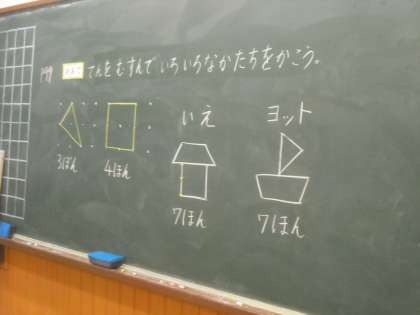 てんを むすんで いろいろなかたちをかこう。
3ぼん
4ほん
いえ
7ほん
ヨット
7ほん